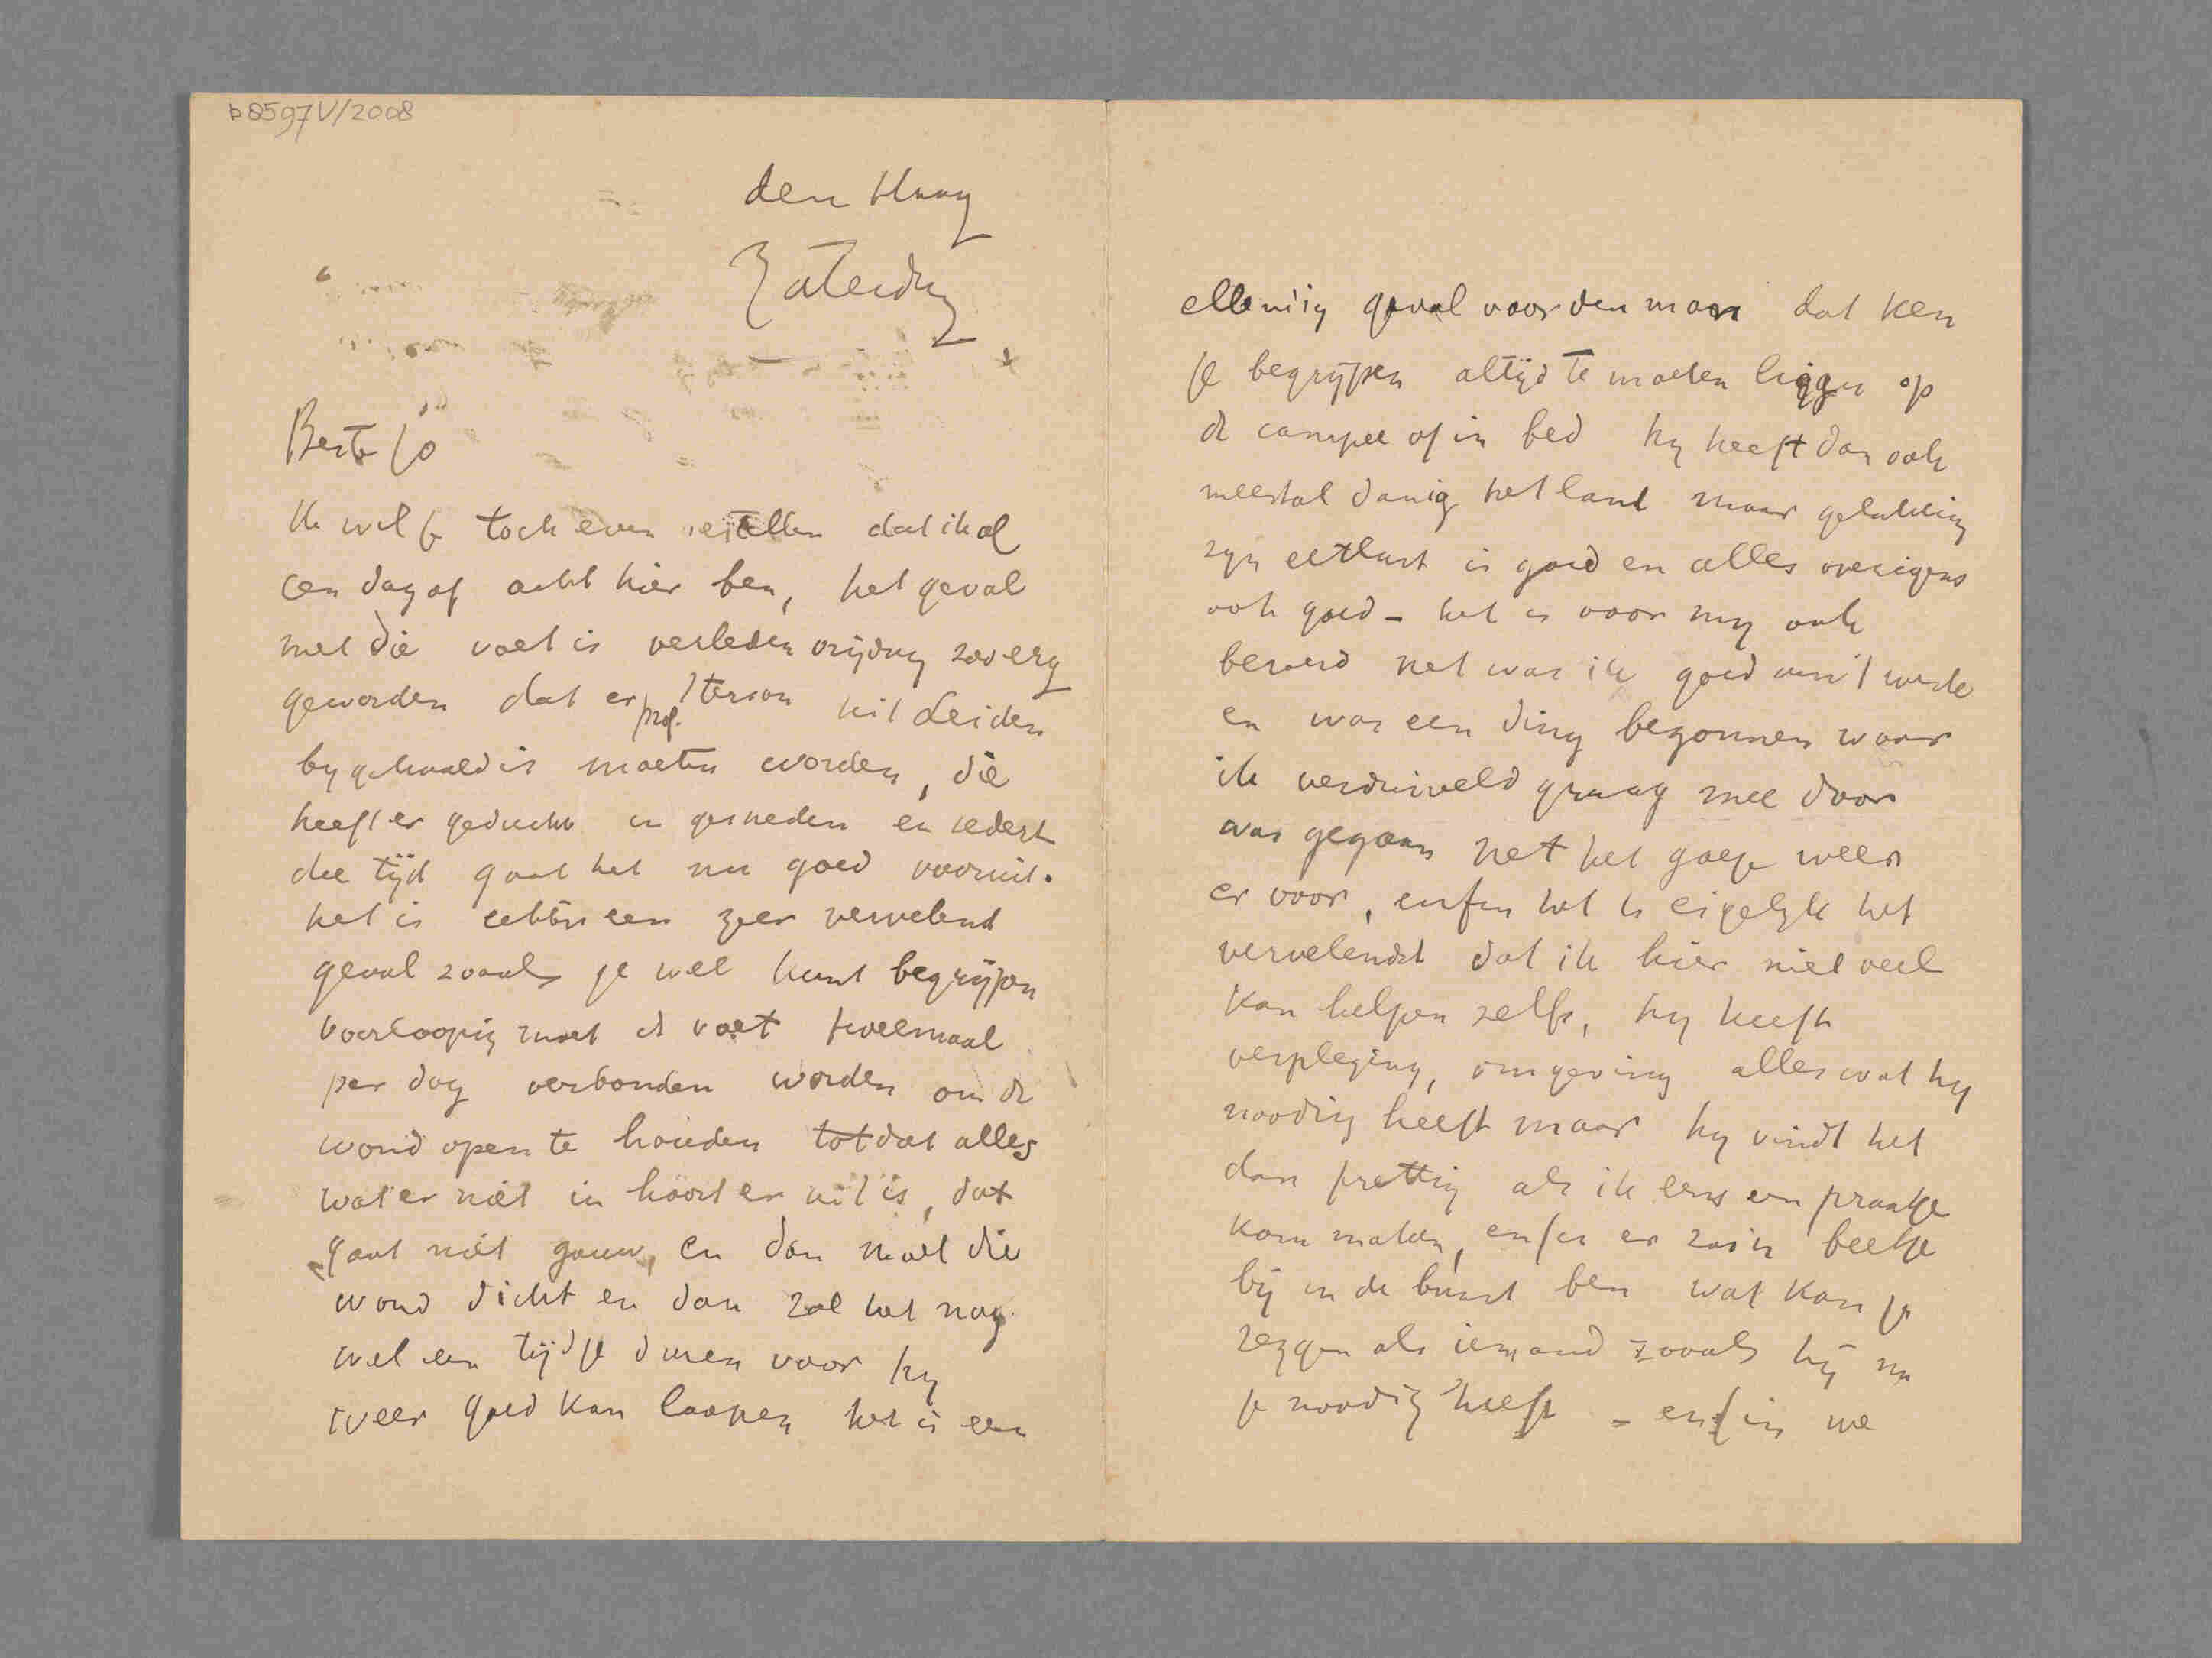 b8597V/2008
den Haag
Zaterdag
Beste Jo
Ik wil je toch even vertellen dat ik al
een dag of acht hier ben, het geval
met die voet is verleden vrijdag zoo erg
geworden dat er prof. Iterson uit Leiden
bygehaald is moeten worden, die
heeft er geducht in gesneden en sedert
die tijd gaat het nu goed vooruit.
het is echter een zeer vervelend
geval zooals je wel kunt begrijpen
voorloopig moet de voet tweemaal
per dag verbonden worden om de
wond open te houden totdat alles
wat er niet in hoort er uit is, dat
gaat niet gauw, en dan moet die
wond dicht en dan zal het nog
wel een tijdje duren voor hy
weer goed kan loopen het is een
ellendig geval voor den man dat ken
je begrijpen altijd te moeten liggen op
de canapee of in bed hy heeft dan ook
meestal danig het land maar gelukkig
zyn eetlust is goed en alles overigens
ook goed – het is voor my ook
beroerd net was ik goed aan 't werk
en was een ding begonnen waar
ik verduiveld graag mee door
was gegaan net het goeje weer
er voor, enfin het is eigelyk het
vervelendst dat ik hier niet veel
kan helpen zelfs, hy heeft
verpleging, omgeving alles wat hy
noodig heeft maar hy vindt het
dan prettig als ik eens een praatje
kom maken, enfin er zoo'n beetje
bij in de buurt ben wat kan je
zeggen als iemand zooals hij nu
je noodig heeft – enfin we